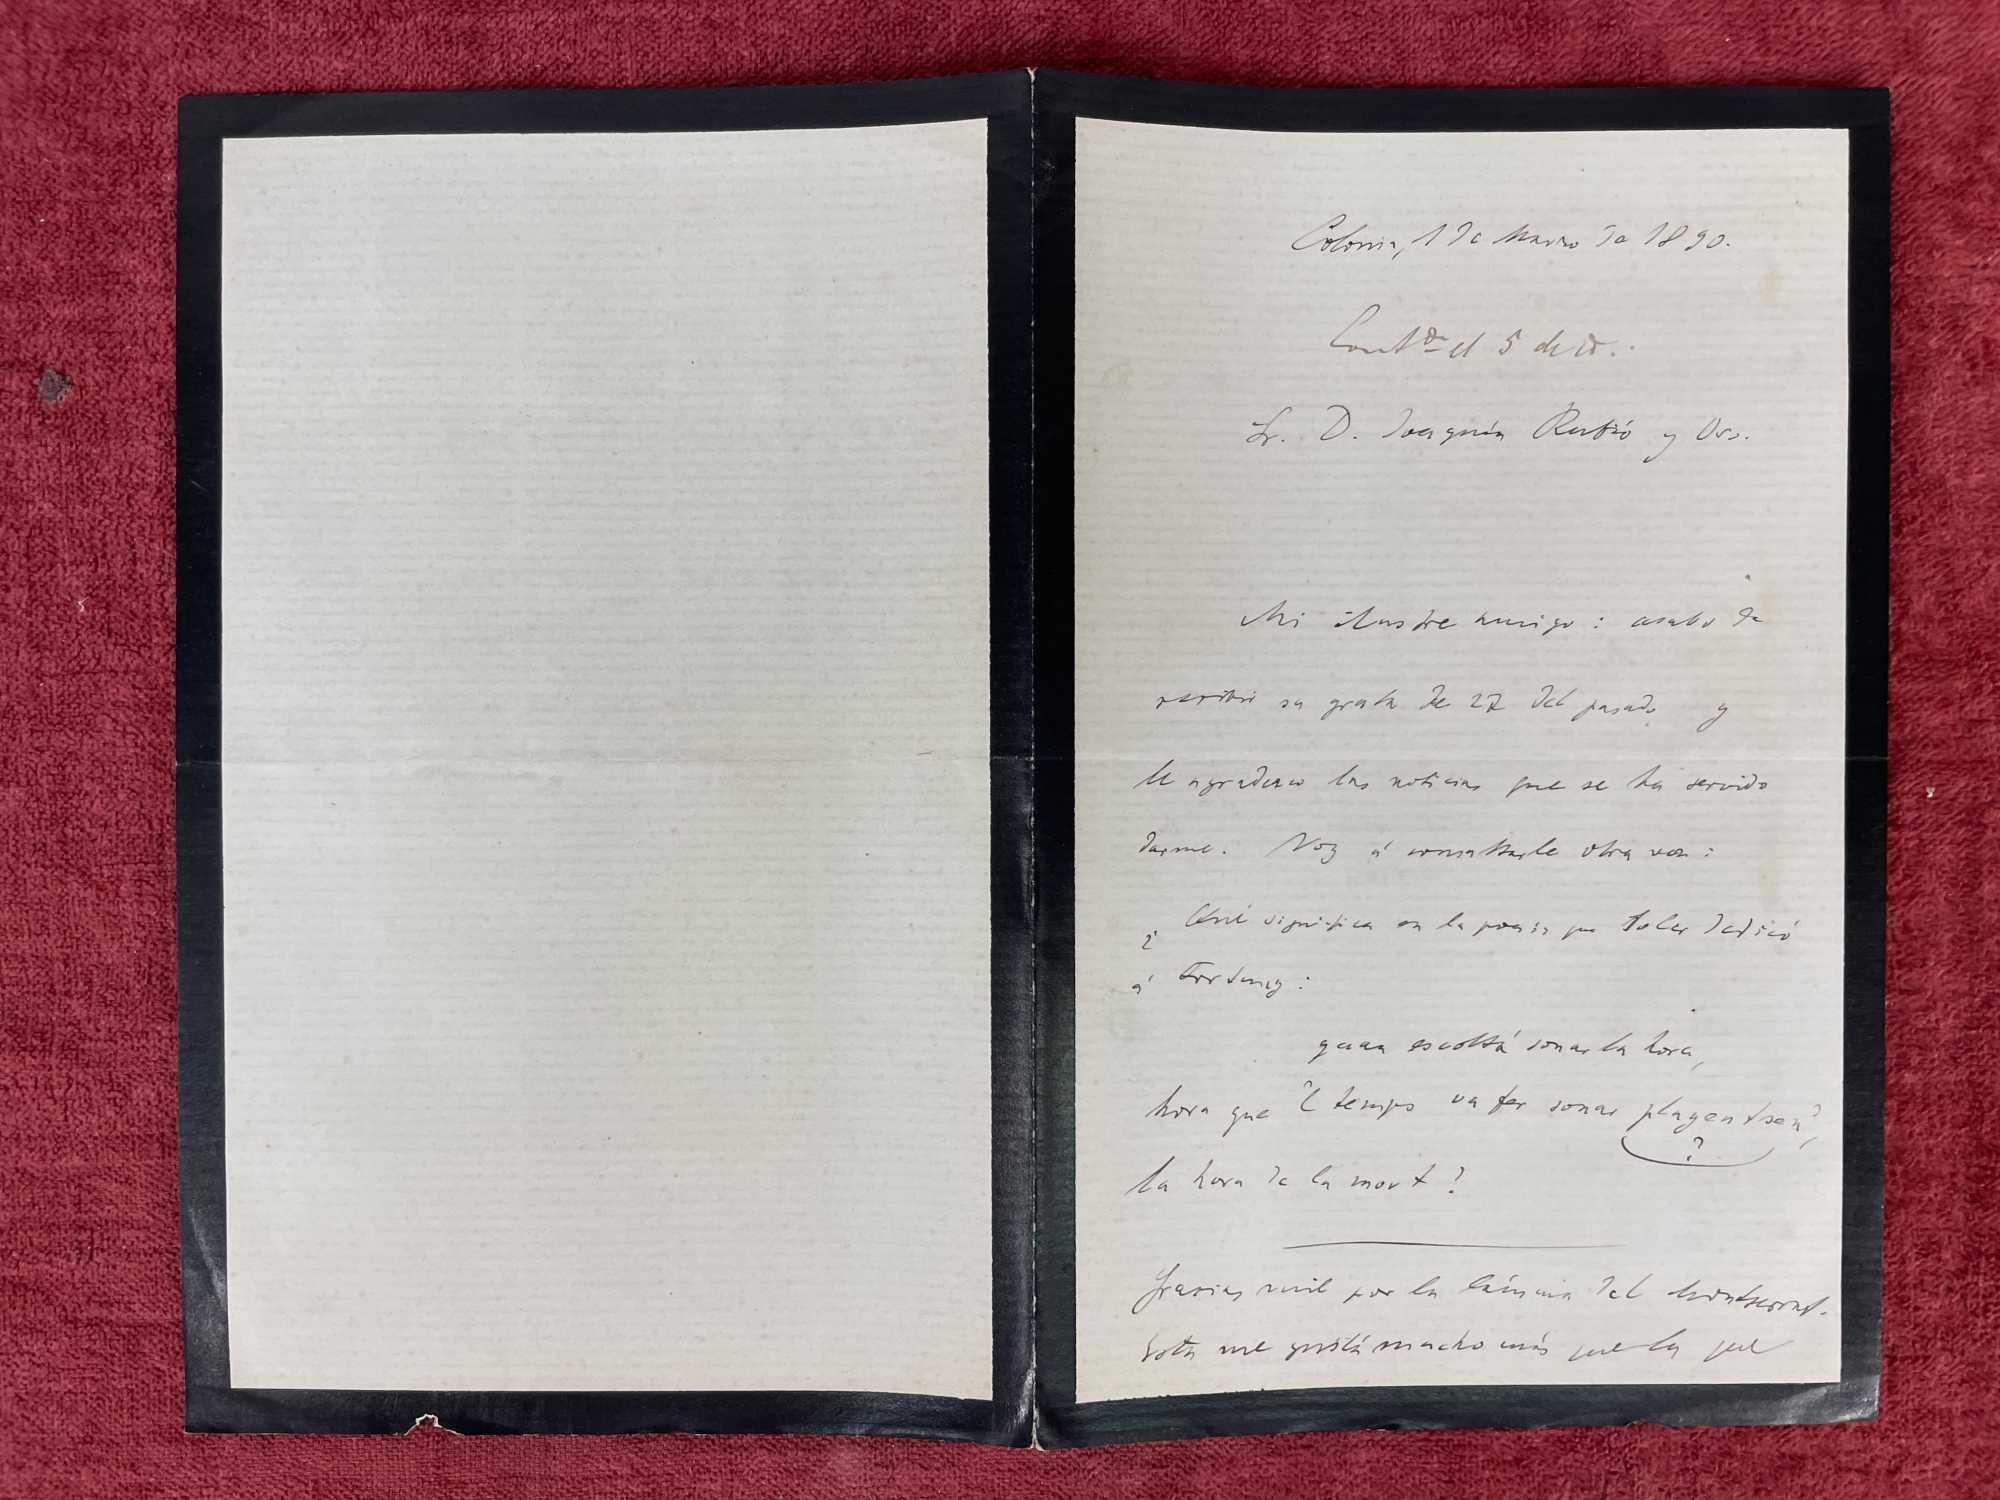 Colonia, 1 de Marzo de 1890.
Contdo el 5 de id.
Sr. D. Joaquín Rubió y Ors.
Mi ilustre amigo: acabo de
recibir su grata de 27 del pasado y
le agradezco las noticias que se ha servido
darme. Voy á consultarle otra vez:
¿ Qué significa en la poesía que Soler dedicó
á Fortuny:
quan escoltá sonar la hora,
hora que 'l temps va fer sonar plagentsen?,
?
la hora de la mort?
Gracias mil por la lámina del Montserrat.
Esta me gusta mucho más que la que